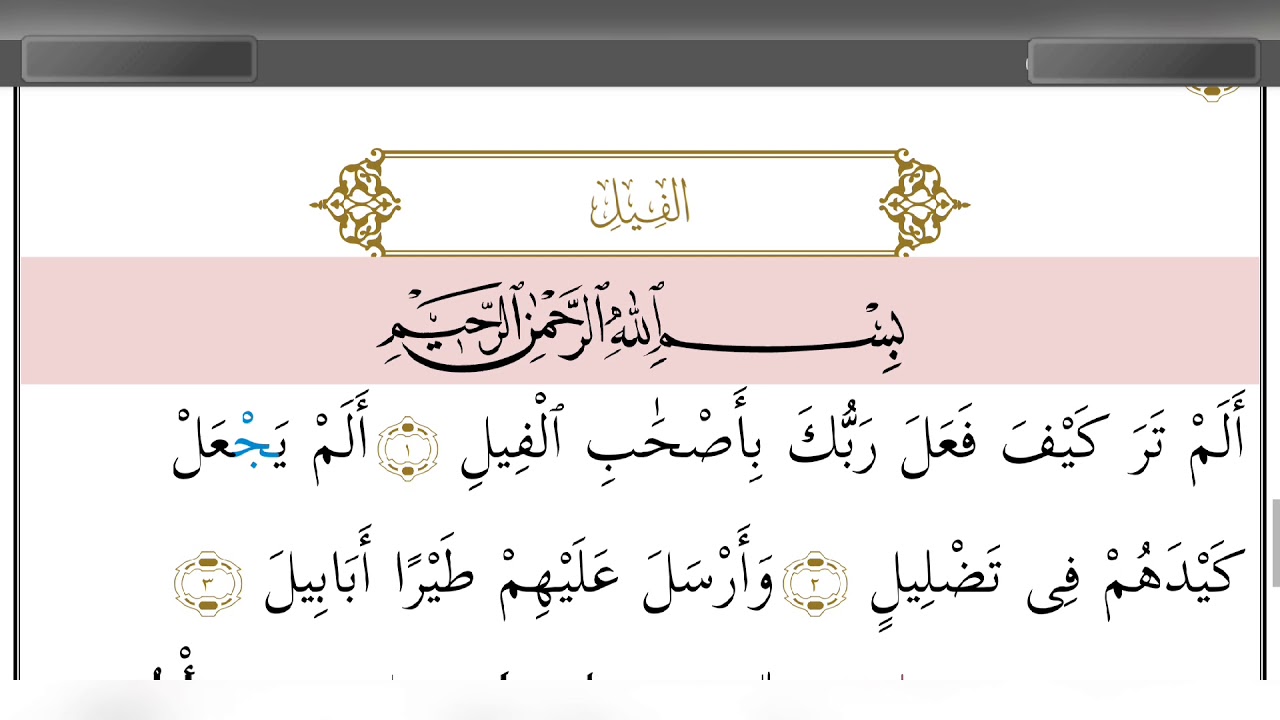 الفِيلِ
بِسْمِ ٱللَّهِ ٱلرَّحْمَٰنِ ٱلرَّحِيمِ
أَلَمْ تَرَ كَيْفَ فَعَلَ رَبُّكَ بِأَصْحَٰبِ ٱلْفِيلِ ١ أَلَمْ يَجْعَلْ
كَيْدَهُمْ فِى تَضْلِيلٍ ٢ وَأَرْسَلَ عَلَيْهِمْ طَيْرًا أَبَابِيلَ ٣